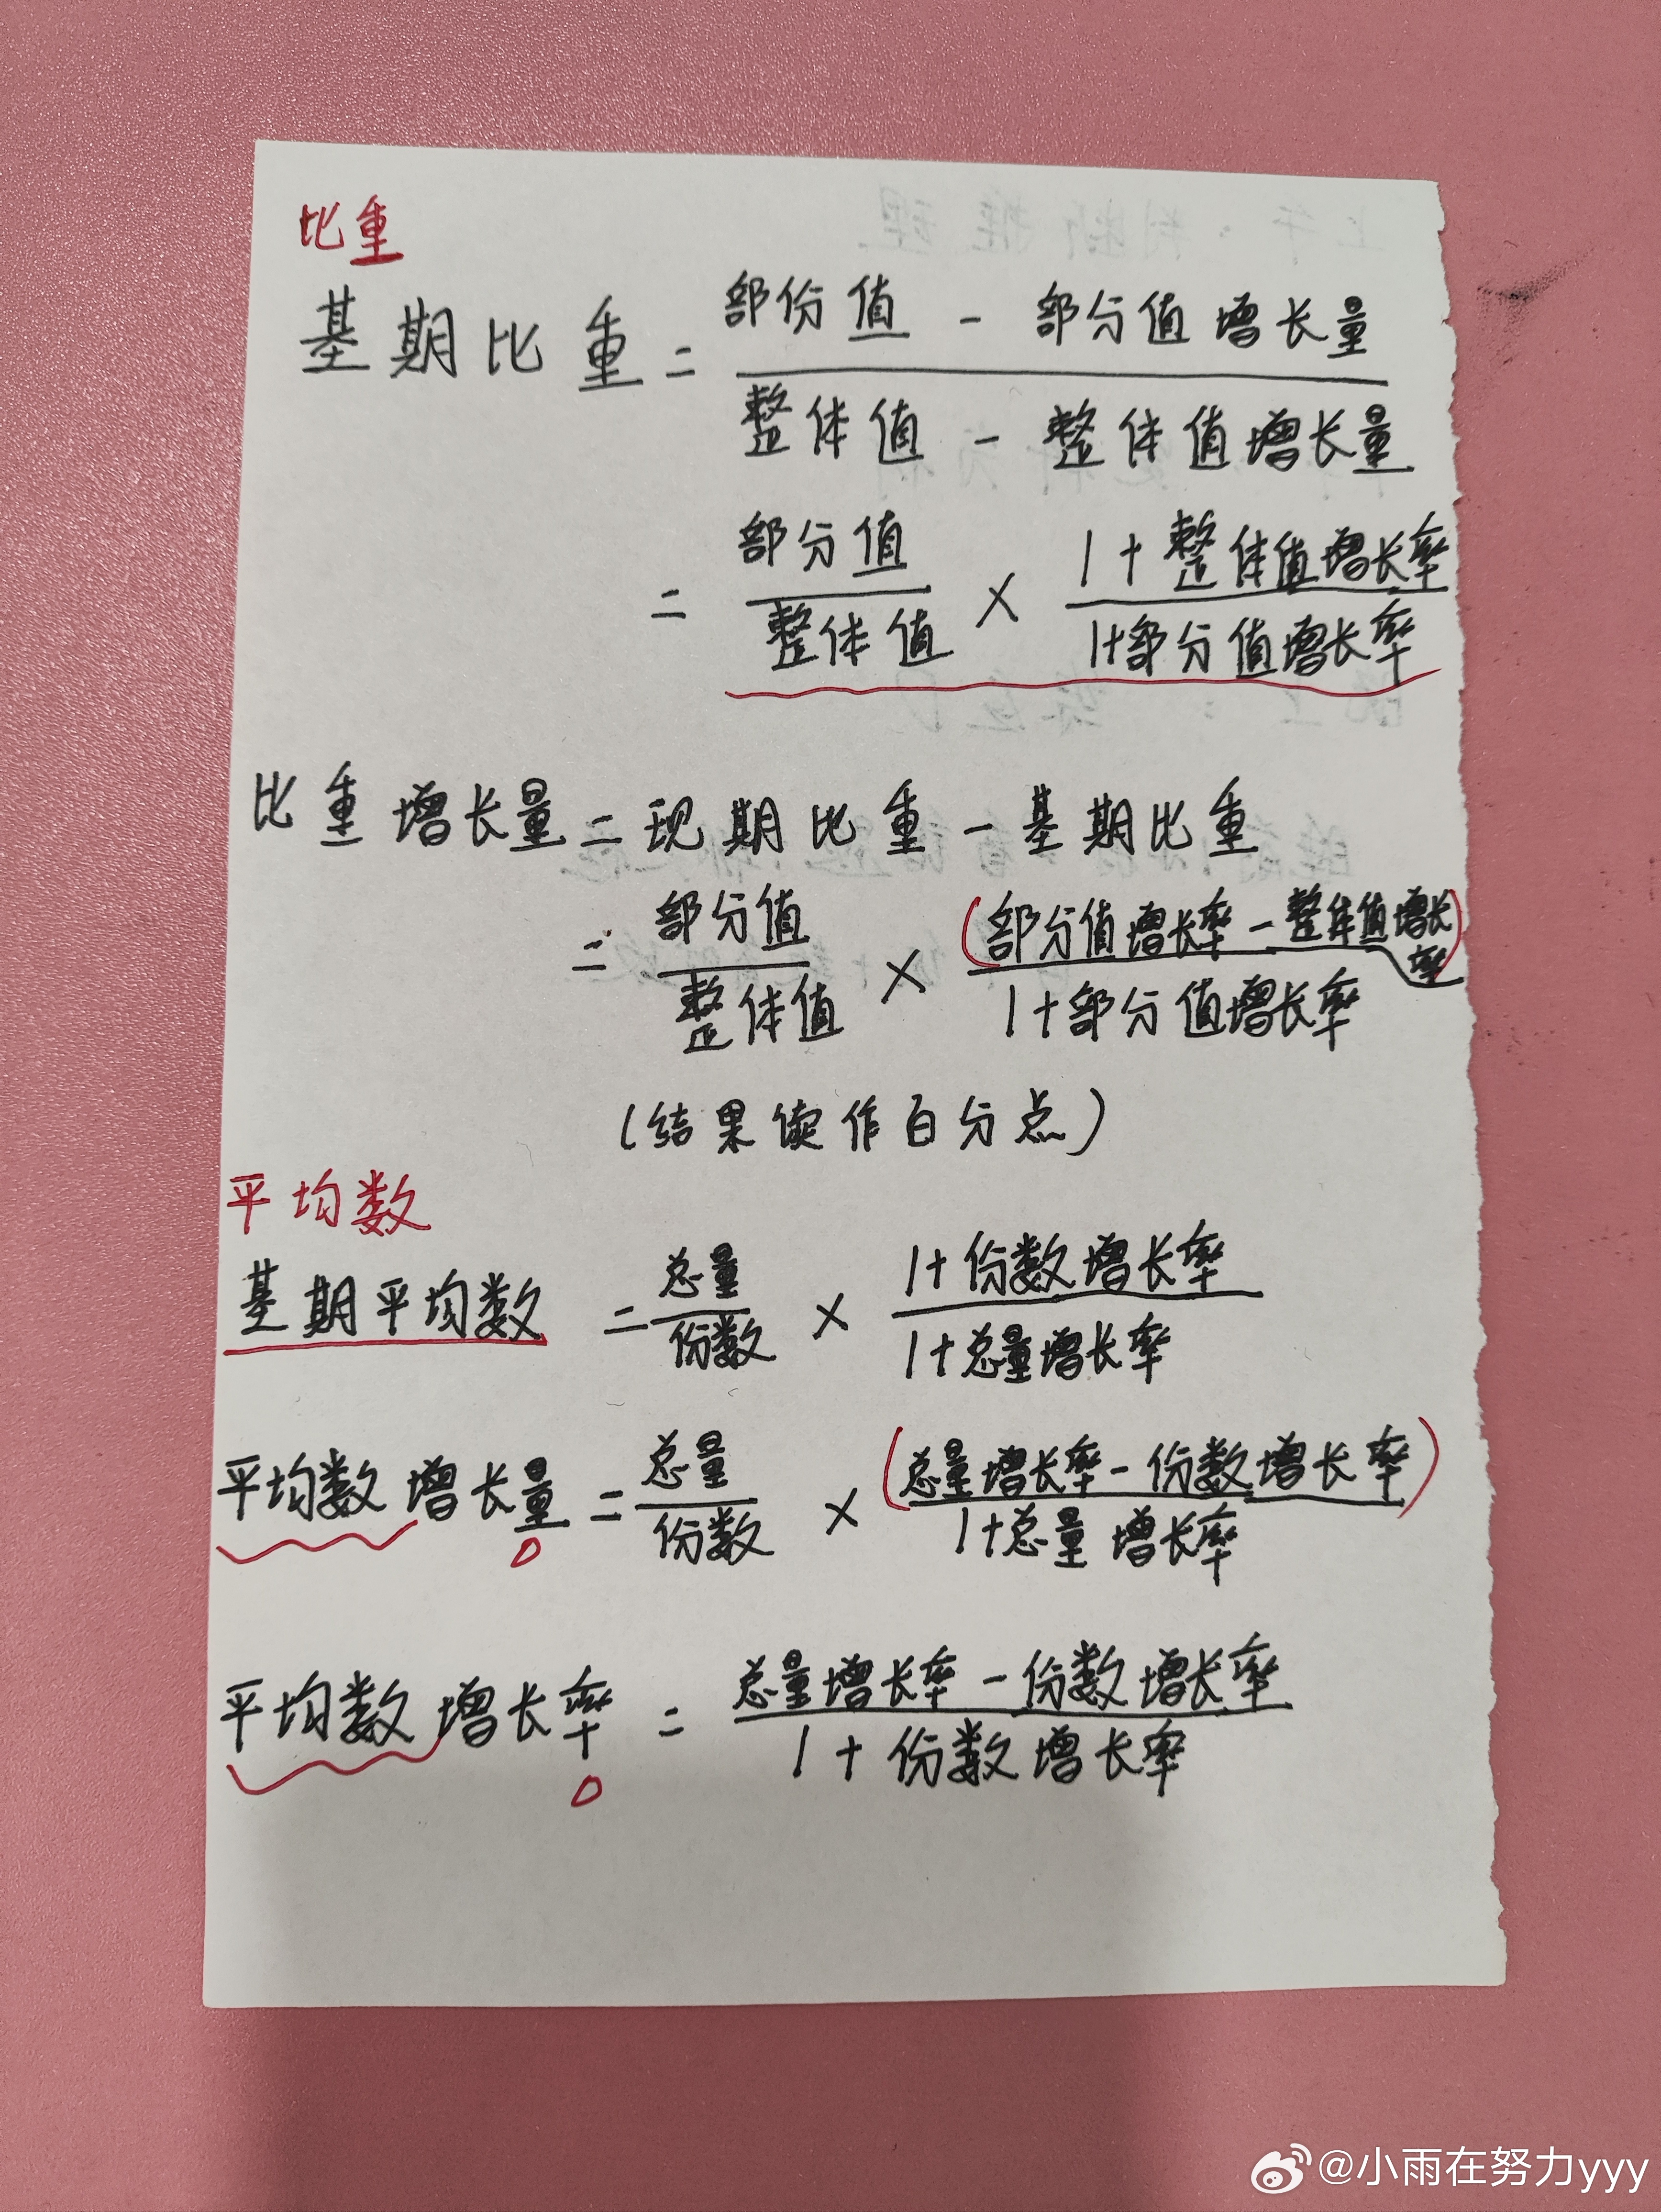 比重
基期比重 = 部份值 - 部分值增长量 / 整体值 - 整体值增长量
= 部分值 / 整体值 × 1+整体值增长率 / 1+部分值增长率
比重增长量 = 现期比重 - 基期比重
= 部分值 / 整体值 × (部分值增长率 - 整体值增长率) / 1+部分值增长率
(结果读作百分点)
平均数
基期平均数 = 总量 / 份数 × 1+份数增长率 / 1+总量增长率
平均数增长量 = 总量 / 份数 × (总量增长率 - 份数增长率) / 1+总量增长率
平均数增长率 = 总量增长率 - 份数增长率 / 1+份数增长率
@小雨在努力yyy